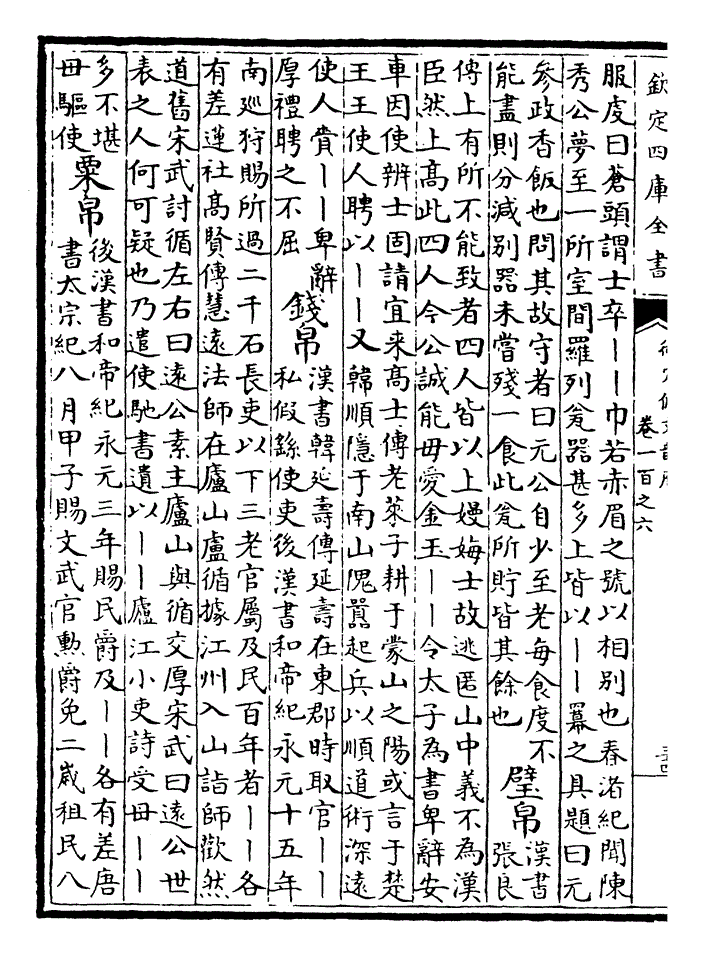 欽定四庫全書
卷一百之六
服虔曰蒼頭謂士卒丨丨巾若赤眉之號以相別也春渚紀聞陳
秀公夢至一所室間羅列瓮器甚多上皆以丨丨羃之具題曰元
參政香飯也問其故守者曰元公自少至老每食度不
能盡則分減別器未嘗殘一食此瓮所貯皆其餘也
璧帛
漢書
張良
傳上有所不能致者四人皆以上嫚娒士故逃匿山中義不為漢
臣然上髙此四人今公誠能毋愛金玉丨丨令太子為書卑辭安
車因使辨士固請宜来髙士傳老萊子耕于蒙山之陽或言于楚
王王使人聘以丨丨又韓順隱于南山隗囂起兵以順道術深遠
使人賫丨丨卑辭
厚禮聘之不屈
錢帛
漢書韓延壽傳延壽在東郡時取官丨丨
私假繇使吏後漢書和帝紀永元十五年
南廵狩賜所過二千石長吏以下三老官屬及民百年者丨丨各
有差蓮社髙賢傳慧遠法師在廬山盧循據江州入山詣師歡然
道舊宋武討循左右曰遠公素主廬山與循交厚宋武曰遠公世
表之人何可疑也乃遣使馳書遺以丨丨廬江小吏詩受毋丨丨
多不堪
毋驅使
粟帛
後漢書和帝紀永元三年賜民爵及丨丨各有差唐
書太宗紀八月甲子賜文武官勲爵免二嵗租民八